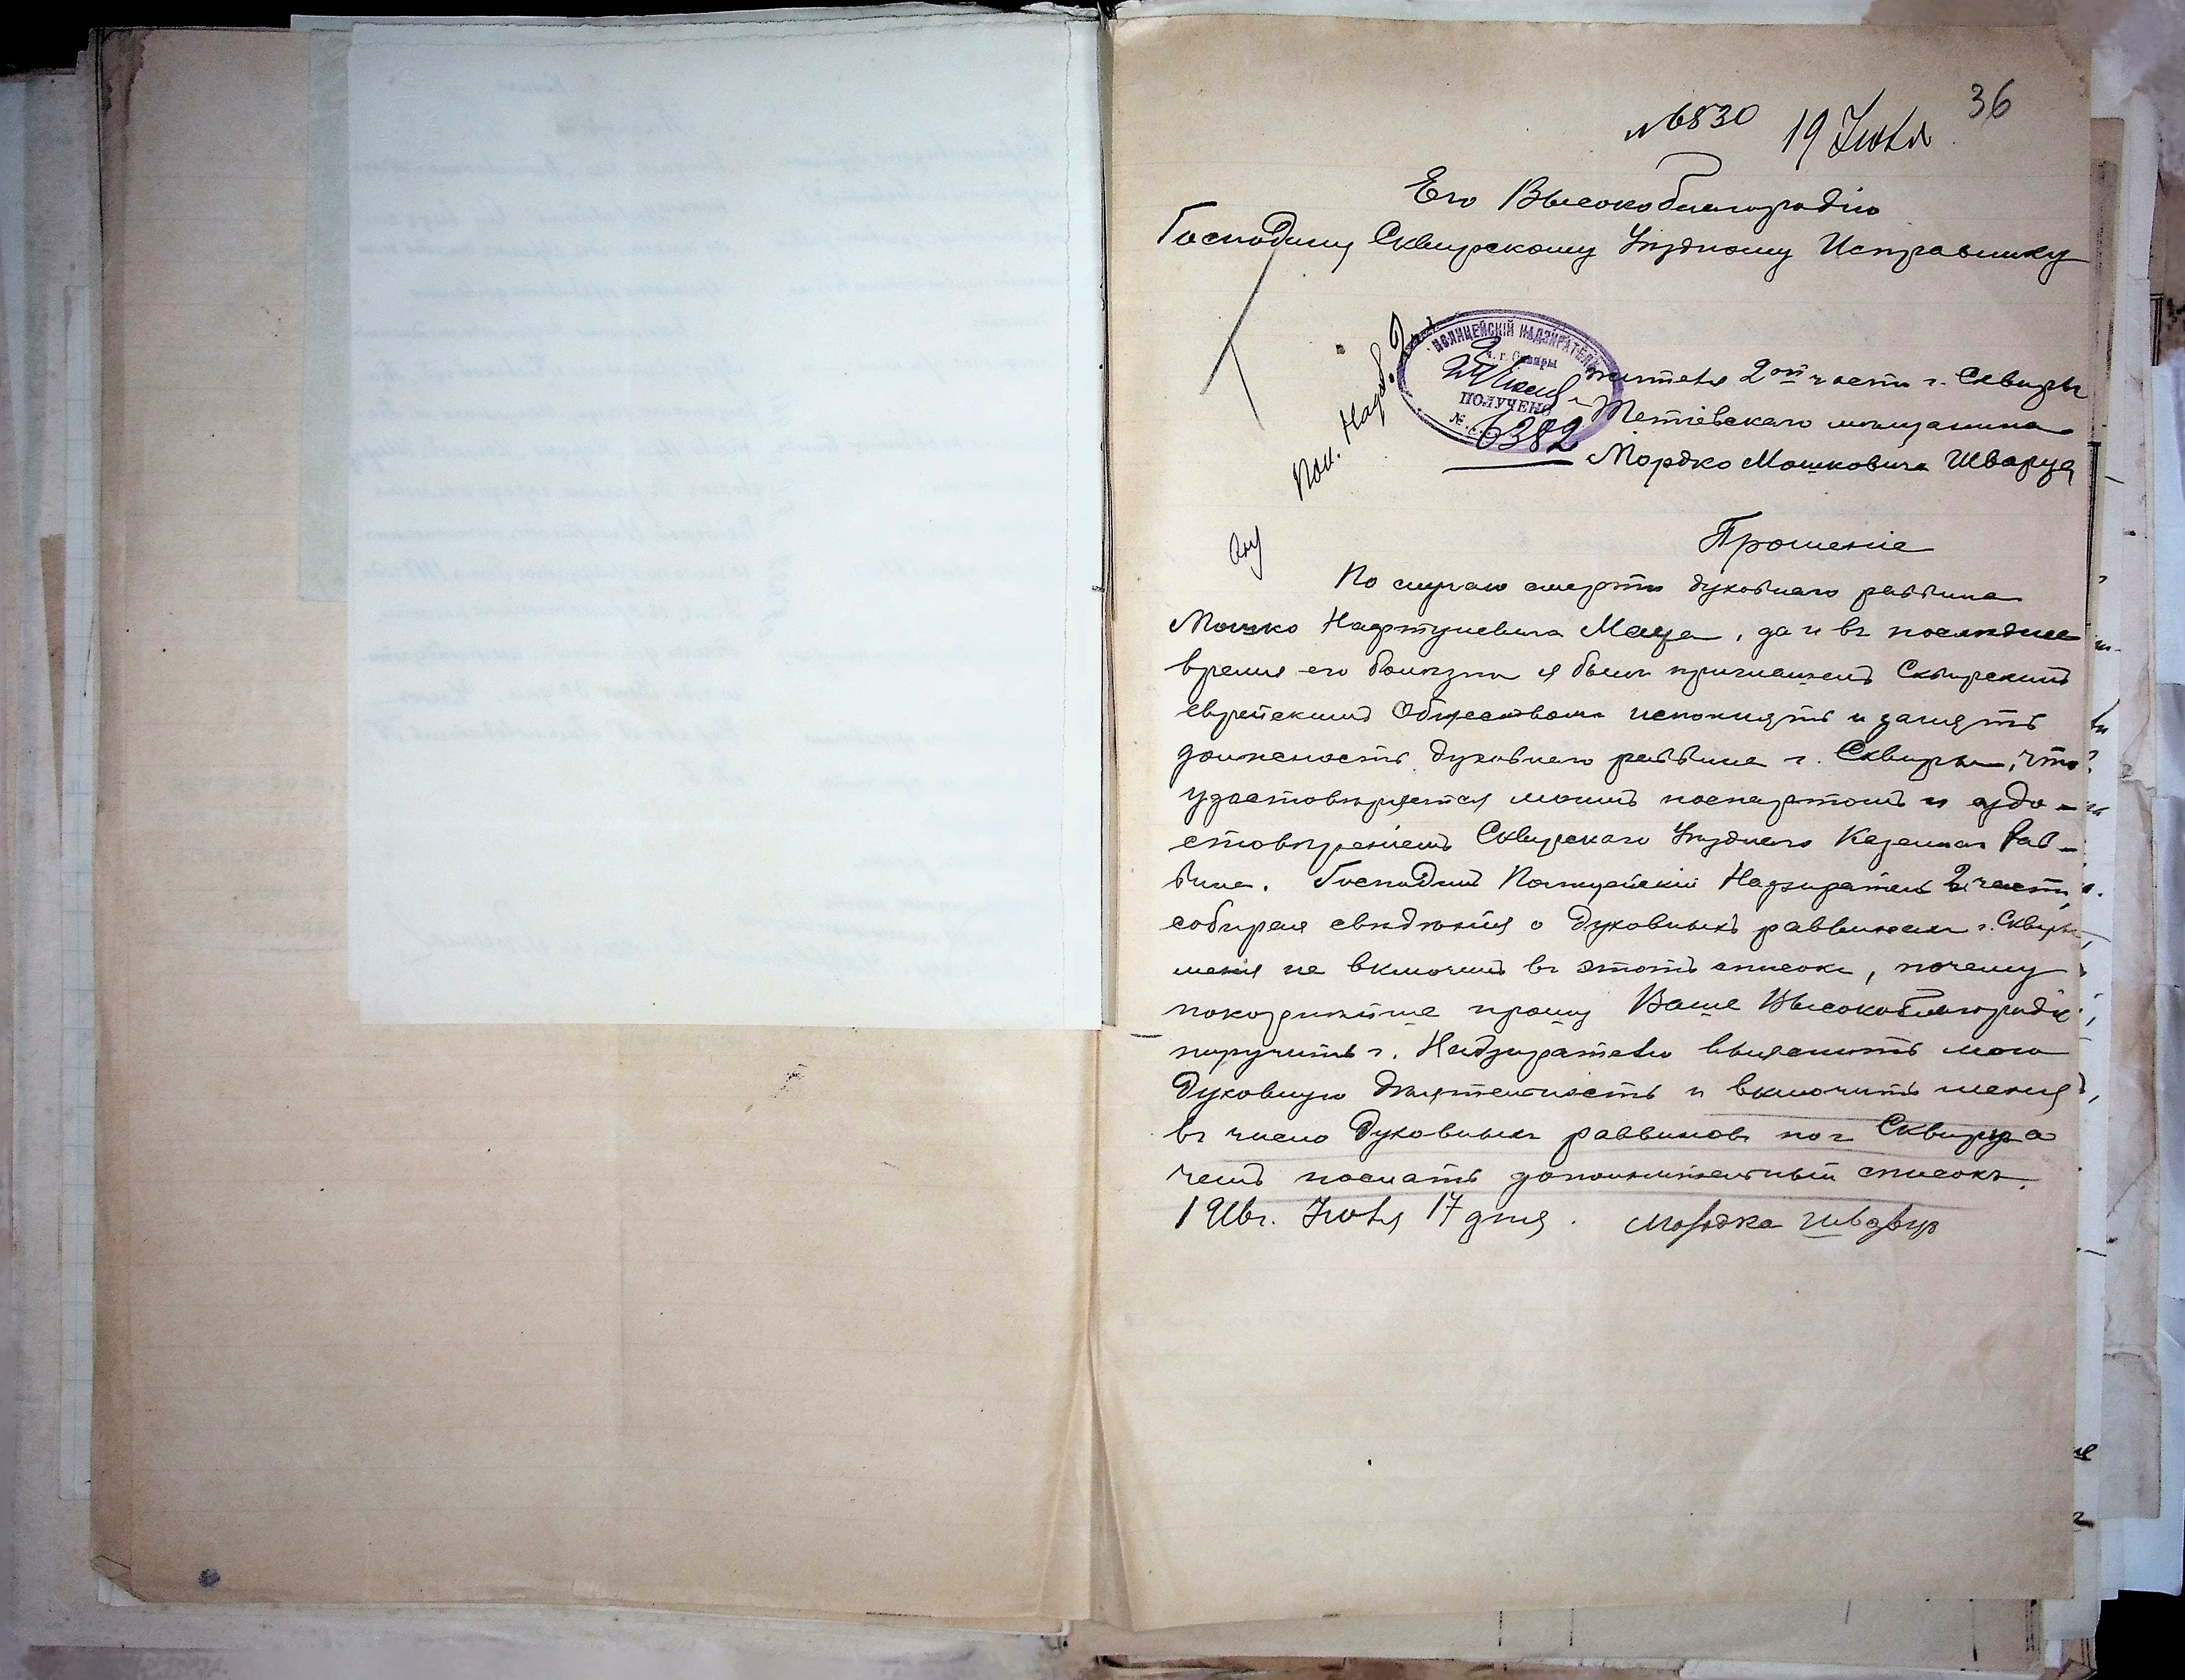 36
№ 6830 19 Июля
Его Высокоблагородію
Господину Сквирскому Уѣздному Исправнику
ПОЛИЦЕЙСКІЙ НАДЗИРАТЕЛЬ
ч. г. Сквиры
ПОЛУЧЕНО
№ 6382
Пол. Надз. 2 ч.
жителя 2ой части г. Сквиры
Тетіевскаго мѣщанина
Мордко Мошковича Шварца
Прошеніе
По случаю смерти духовнаго раввина
Мошко Нафтулевича Маца, да и въ послѣднее
время его болѣзни я былъ приглашенъ Сквирскимъ
еврейскимъ Обществомъ исполнять и занять
должность духовнаго раввина г. Сквиры, что
удостовѣряется моимъ паспортомъ и удо-
стовѣреніемъ Сквирскаго Уѣзднаго Казеннаго Рав-
вина. Господинъ Полицейскій Надзиратель 2 части,
собирая свѣдѣнія о духовныхъ раввинахъ г. Сквиры,
меня не включилъ въ этотъ списокъ, почему
покорнѣйше прошу Ваше Высокоблагородіе
поручить г. Надзирателю выяснить мою
духовную дѣятельность и включить меня
въ число духовныхъ раввиновъ по г. Сквира о
чемъ послать дополнительный списокъ.
191 г. Іюля 17 дня. Мордка Шварцъ